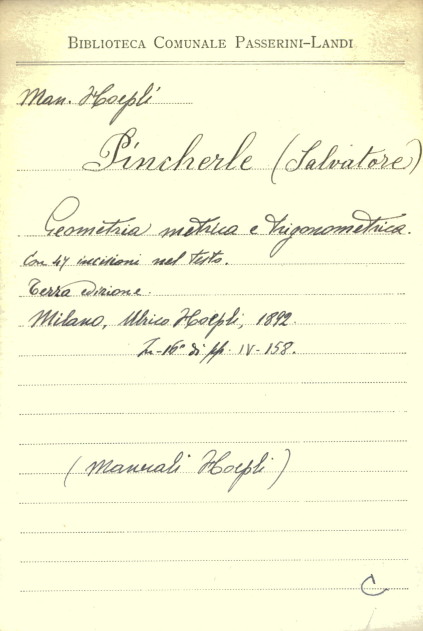 BIBLIOTECA COMUNALE PASSERINI-LANDI
Man. Hoepli
Pincherle (Salvatore)
Geometria metrica e trigonometrica.
Con 47 incisioni nel testo.
Terza edizione.
Milano, Ulrico Hoepli, 1892.
In-16° di pp. IV-158.
(Manuali Hoepli)
C